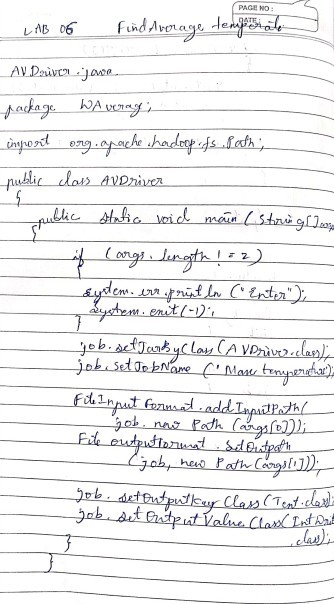 PAGE NO :
DATE :
LAB 06 Find Average temperate
AVDriver.java
package WAverag;
import org.apache.hadoop.fs.Path;
public class AVDriver
{
public static void main (String[] args
{
if (args.length != 2)
{
system.err.println ("Enter");
system.exit(-1);
}
job.setJarByClass (AVDriver.class);
job.setJobName ("Max temperature");
FileInput Format.addInputPath(
job. new Path (args[0]));
File outputformat. SetOutpath
(job, new Path (args[1]));
job. setOutputkey Class (Text.class);
job. set Output Value Class (Int
class);
}
}